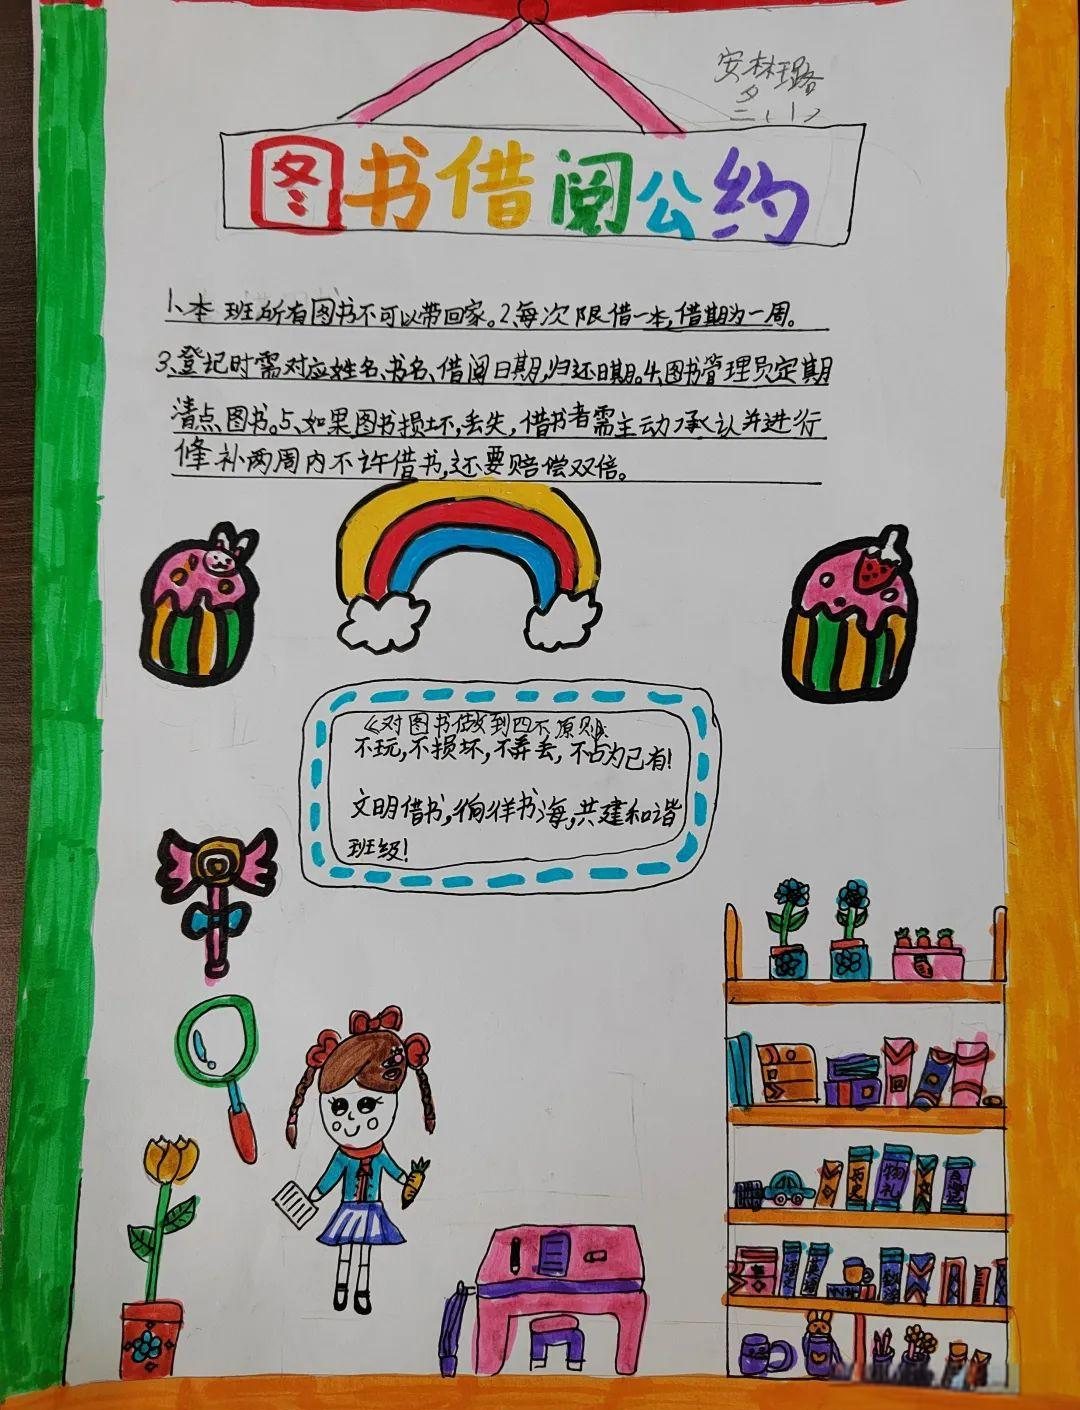 安林璐
三(1)
图书借阅公约
1、本班所有图书不可以带回家。2、每次限借一本,借期为一周。
3、登记时需对应姓名、书名、借阅日期,归还日期。4、图书管理员定期
清点图书。5、如果图书损坏,丢失,借书者需主动承认并进行
修补两周内不许借书,还要赔偿双倍。
《对图书做到四不原则》:
不玩,不损坏,不弄丢,不占为己有!
文明借书,徜徉书海,共建和谐
班级!
历史
物礼
语文
英语